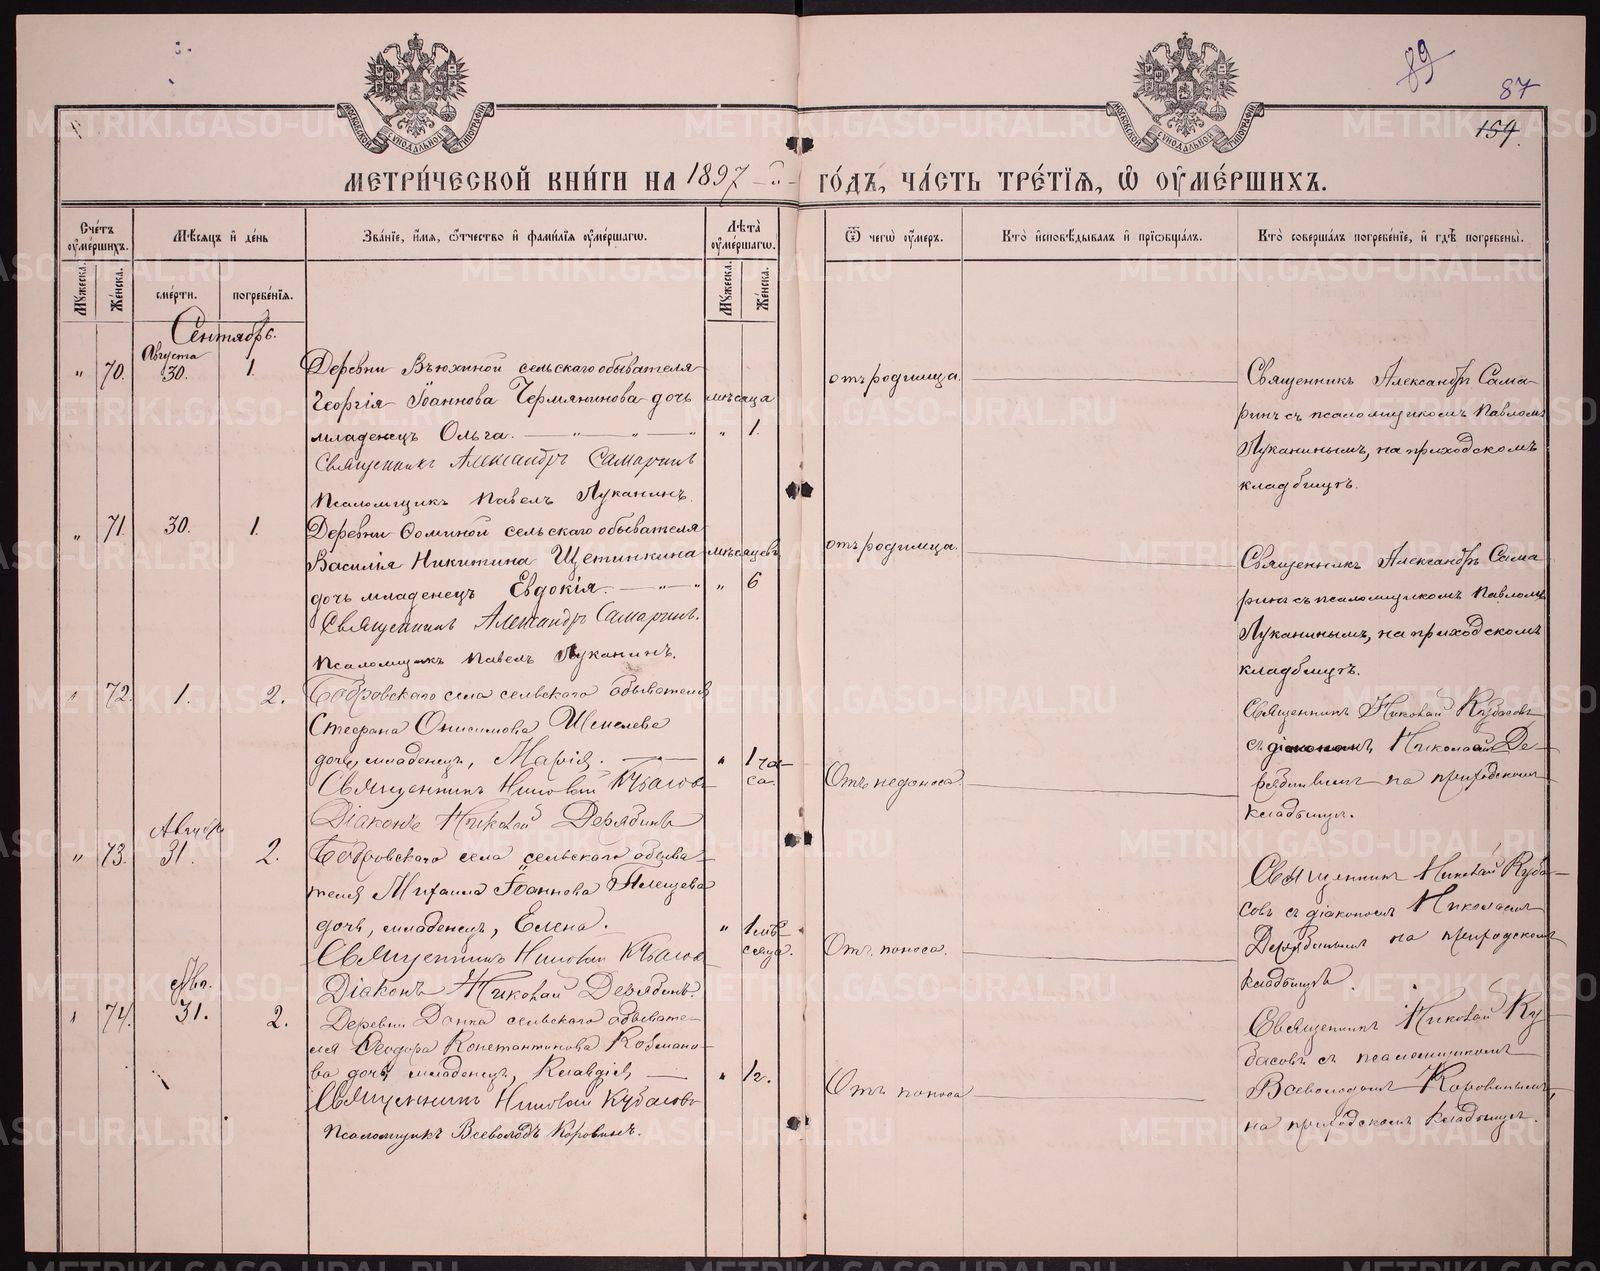 89
87
159.
МОСКОВСКОЙ СѴНОДАЛЬНОЙ ТИПОГРАФІИ
МОСКОВСКОЙ СѴНОДАЛЬНОЙ ТИПОГРАФІИ
МЕТРИ́ЧЕСКОЙ КНИ́ГИ НА 1897 ГО́ДЪ, ЧА́СТЬ ТРЕ́ТІЯ, Ѡ ОУМЕ́РШИХЪ.
Сче́тъ оуме́ршихъ.
Мѣсяцъ и де́нь
Зва́ніе, и́мя, ѻ́тчество и фами́лія оуме́ршагѡ.
Лѣта̀ оуме́ршагѡ.
Ѿ чегѡ̀ оу́меръ.
Кто̀ исповѣ́дывалъ и пріѡбща́лъ.
Кто̀ соверша́лъ погребе́ніе, и гдѣ̀ погребены̀.
Мꙋ́жеска.
Же́нска.
сме́рти.
погребе́нія.
Мꙋ́жеска.
Же́нска.
Сентябрь.
Августа
" 70. 30. 1.
Деревни Вьюхиной сельскаго обывателя
Георгія Іоаннова Чермянинова дочь
мѣсяца
младенецъ Ольга. " 1.
Священникъ Александръ Самаринъ
Псаломщикъ Павелъ Луканинъ.
отъ родимца.
Священникъ Александръ Сама-
ринъ съ псаломщикомъ Павломъ
Луканинымъ, на приходскомъ
кладбищѣ.
" 71. 30. 1.
Деревни Ѳоминой сельскаго обывателя
Василія Никитина Щетинкина
мѣсяцевъ
дочь младенецъ Евдокія. " 6
Священникъ Александръ Самаринъ.
Псаломщикъ Павелъ Луканинъ.
отъ родимца.
Священникъ Александръ Сама-
ринъ съ псаломщикомъ Павломъ
Луканинымъ, на приходскомъ
кладбищѣ.
" 72. 1. 2.
Бобровскаго села сельскаго обывателя
Стефана Онисимова
дочь, младенецъ, Марія. " 1 ча-
са.
Священникъ Николай Кубасовъ
Діаконъ Николай Дерябинъ
Отъ недоноса.
Священникъ Николай Кубасовъ
съ діакономъ Николаемъ Де-
рябинымъ на приходскомъ
кладбищѣ.
Августа
" 73. 31. 2.
Бобровскаго села сельскаго обыва-
теля Михаила Іоаннова
дочь, младенецъ, Елена. " 1 мѣ-
сяца.
Священникъ Николай Кубасовъ
Діаконъ Николай Дерябинъ.
Отъ поноса.
Священникъ Николай Куба-
совъ съ діакономъ Николаемъ
Дерябинымъ на приходскомъ
кладбищѣ.
Авг.
" 74. 31. 2.
Деревни сельскаго обывате-
ля Ѳеодора Константинова
дочь, младенецъ, Клавдія, " 1/2.
Священникъ Николай Кубасовъ
Псаломщикъ Всеволодъ Коровинъ.
Отъ поноса
Священникъ Николай Ку-
басовъ съ псаломщикомъ
Всеволодомъ Коровинымъ,
на приходскомъ кладбищѣ.
METRIKI.GASO-URAL.RU